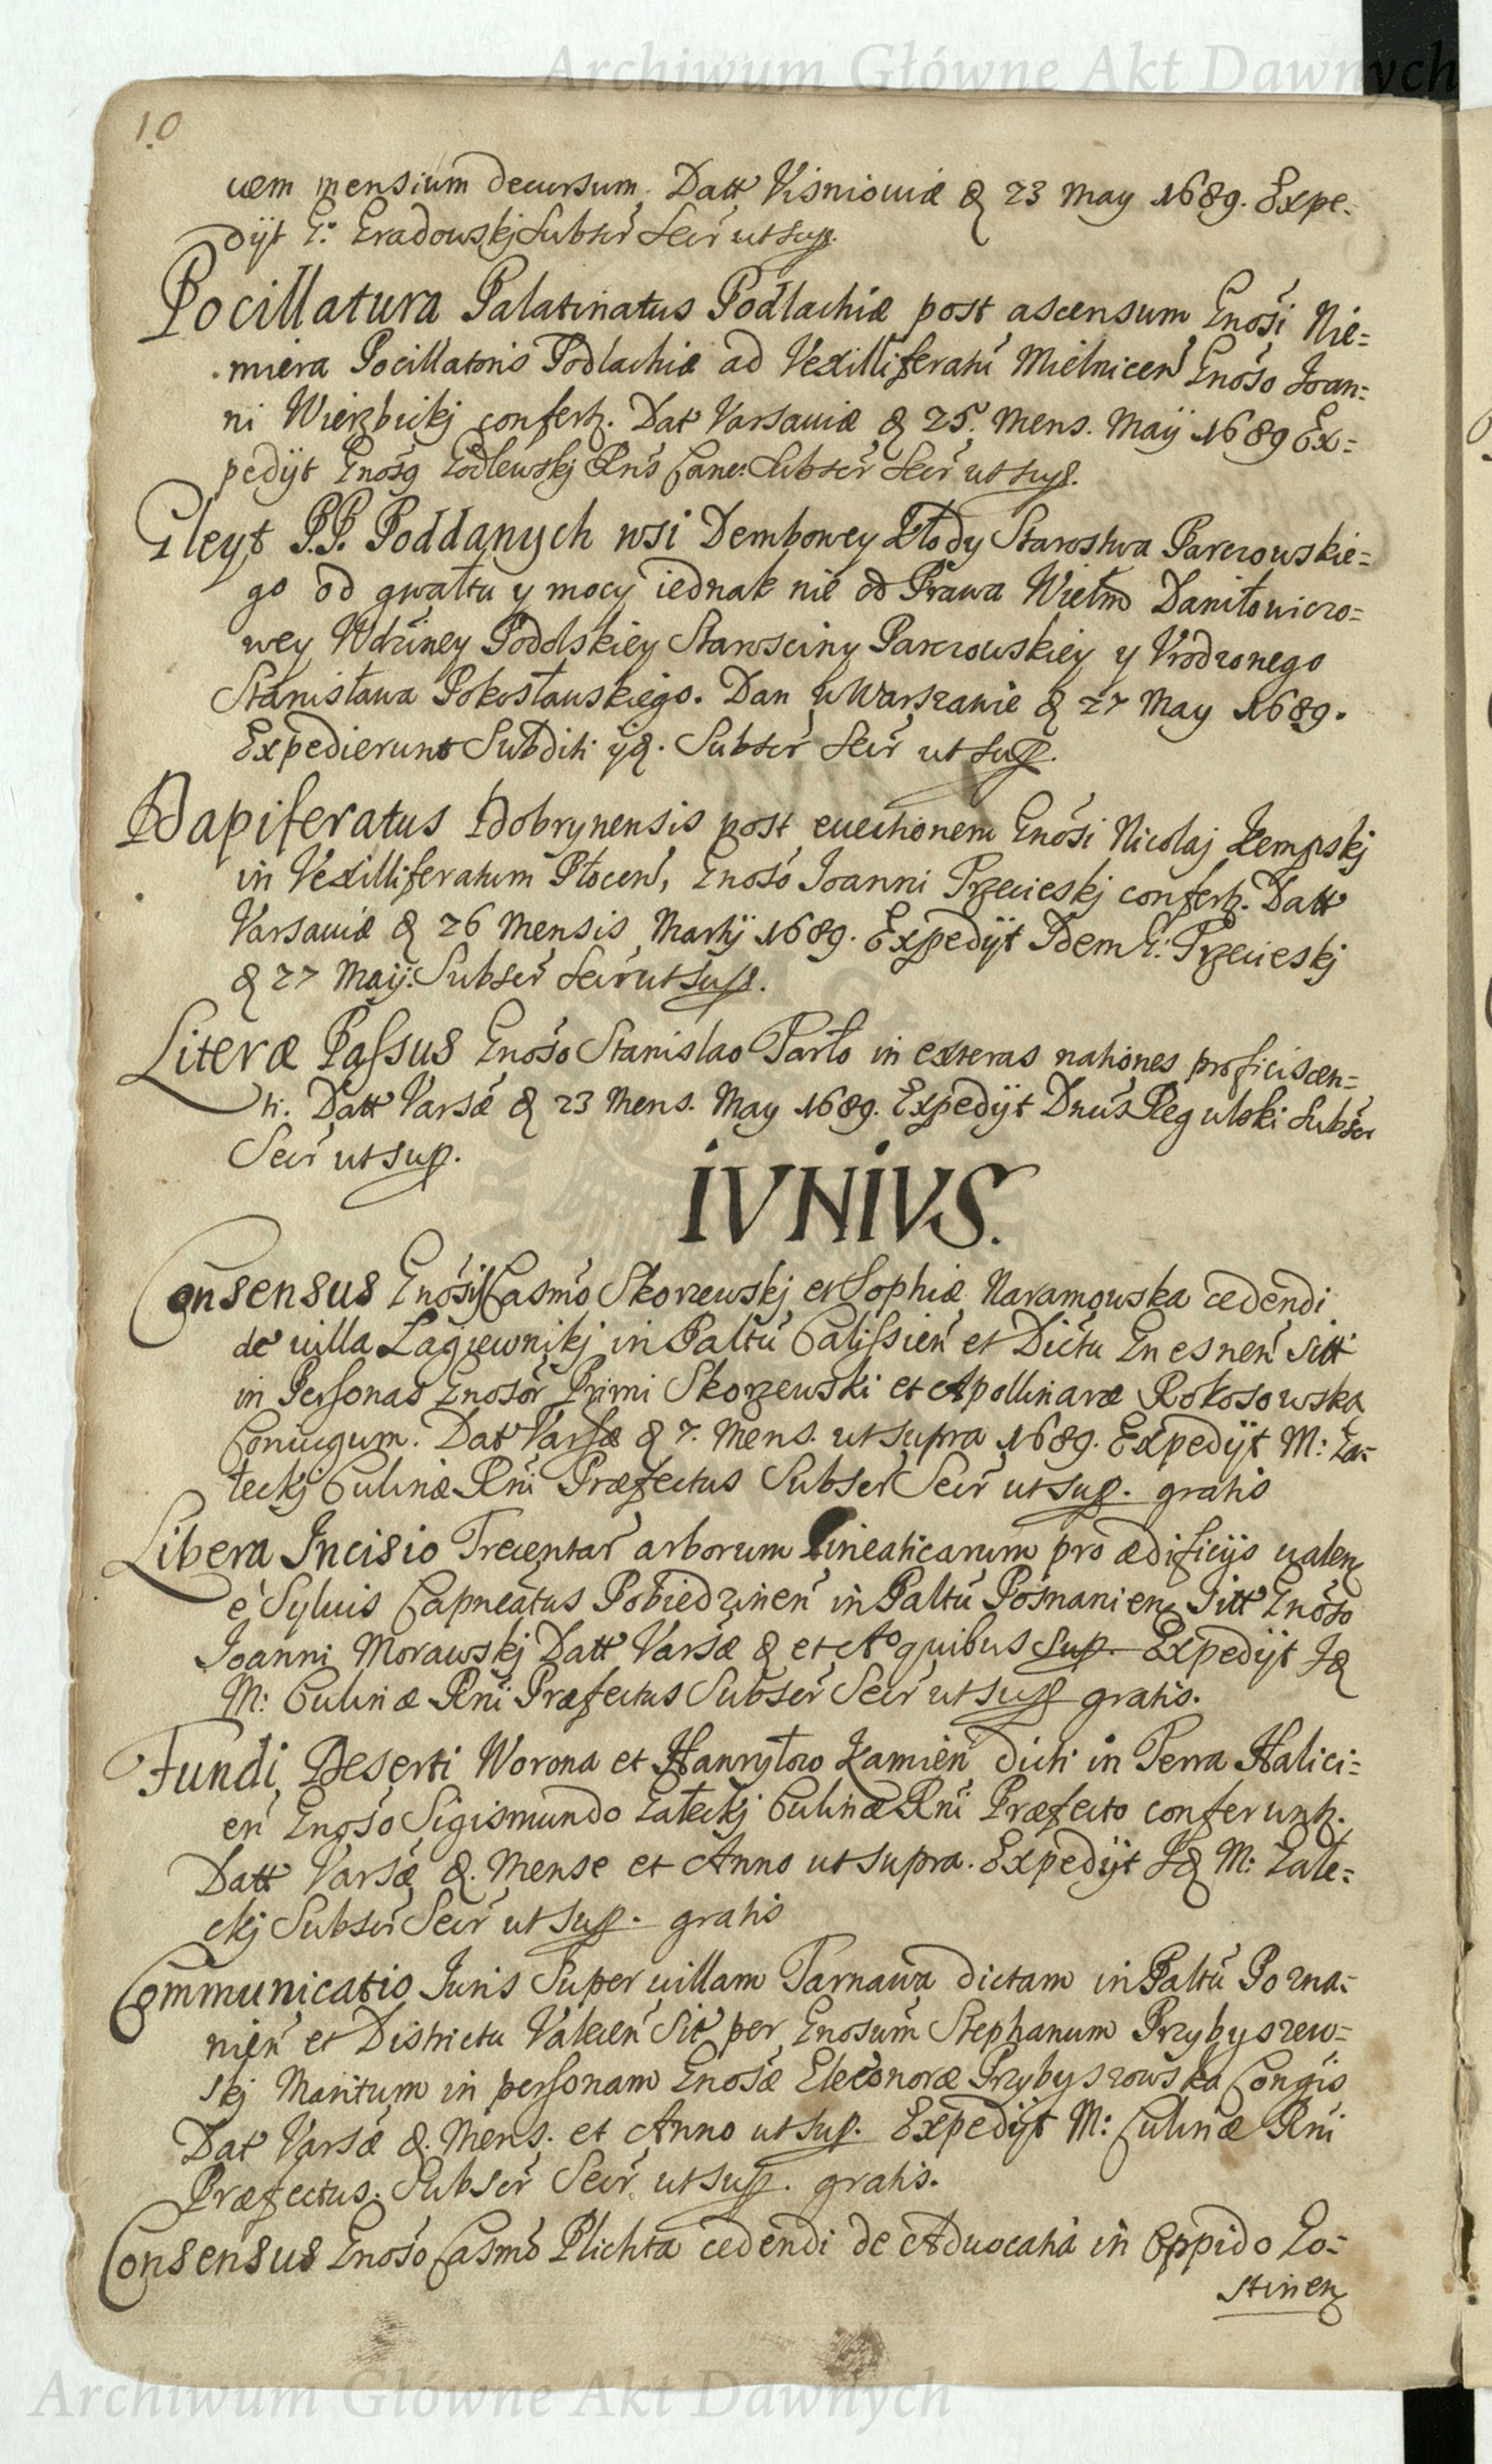 Archiwum Główne Akt Dawnych
10
uem mensium decursum. Datt Visniouiæ D 23 May 1689. Expe-
dijt G: Gradowskj Subscr Secr ut sup.
Pocillatura Palatinatus Podlachiæ post ascensum Gnosi Nie-
miera Pocillatoris Podlachiæ ad Vexilliferatu Mielnicen Gnoso Joan-
ni Wierzbickj confert. Dat Varsauiæ D 25. Mens. Maij 1689 Ex-
pedijt Gnosg Godlewskj Rns Canc: Subscr Secr ut sup.
Gleyt P.P. Poddanych wsi Dembowey Kłody Starostwa Parczowskie-
go od gwałtu y mocy iednak nie od Prawa Wielmo Daniłowiczo-
wey Wdziney Podolskiey Starosciny Parczowskiey y Vrodzonego
Stanisława Pokosławskiego. Dan w Warszawie D 27 May 1689.
Expedierunt Subditi ijd. Subscr Secr ut sup.
Dapiferatus Dobrynensis post euectionem Gnosi Nicolaj Kempskj
in Vexilliferatum Płocen, Gnoso Joanni Przecieskj confert. Datt
Varsauiæ D 26 Mensis Martij 1689. Expedijt Idem G: Przecieskj
D 27 Maij: Subscr Secr ut sup.
Literæ Passus Gnoso Stanislao Tarło in exteras nationes proficiscen-
ti. Datt Varsæ D 23 Mens. May 1689. Expedijt Dnus Regulski Subscr
Secr ut sup.
IVNIVS.
Consensus Gnosis Casmo Skorzewskj et Sophiæ Naramowska cedendi
de uilla Łagiewnikj in Paltu Calissien et Dictu Gnesnen Sitt
in Personas Gnosor Primi Skorzewski et Apollinaræ Rokosowska
Coniugum. Dat Varsæ D 7. Mens. ut supra 1689. Expedijt M: Za-
łeckj Culinæ Rni Præfectus Subscr Secr ut sup. gratis
Libera Incisio Trecentar arborum lineaticarum pro ædificijs ualen
e Syluis Capneatus Pobiedzinen in Paltu Posnanien Sitt Gnoso
Joanni Morawskj Datt Varsæ D et Ao quibus sup. Expedijt Id
M: Culinæ Rni Præfectus Subscr Secr ut sup gratis.
Fundi Deserti Worona et Hawryłow Kamien dicti in Terra Halici-
en Gnoso Sigismundo Załeckj Culinæ Rni Præfecto conferunt.
Datt Varsæ D. Mense et Anno ut supra. Expedijt Id M: Załe-
ckj Subscr Secr ut sup. gratis
Communicatio Iuris Super uillam Tarnawa dictam in Paltu Pozna-
nien et Districtu Valcen Sit per Gnosum Stephanum Przybyszew-
skj Maritum in personam Gnosæ Eleconoræ Przybyszowska Congis
Dat Varsæ D. Mens. et Anno ut sup. Expedijt M: Culinæ Rni
Præfectus. Subscr Secr ut sup. gratis.
Consensus Gnoso Casmo Plichta cedendi de Aduocatia in Oppido Go-
stinen
Archiwum Główne Akt Dawnych